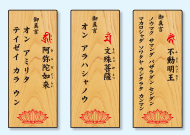 御真言
不動明王
ノウマク サマンダ バザラダン センダン
マカロシャダ ソワタヤ ウンタラタ カンマン
御真言
文殊菩薩
オン アラハシャノウ
御真言
阿弥陀如来
オン アミリタ
テイゼイ カラ ウン